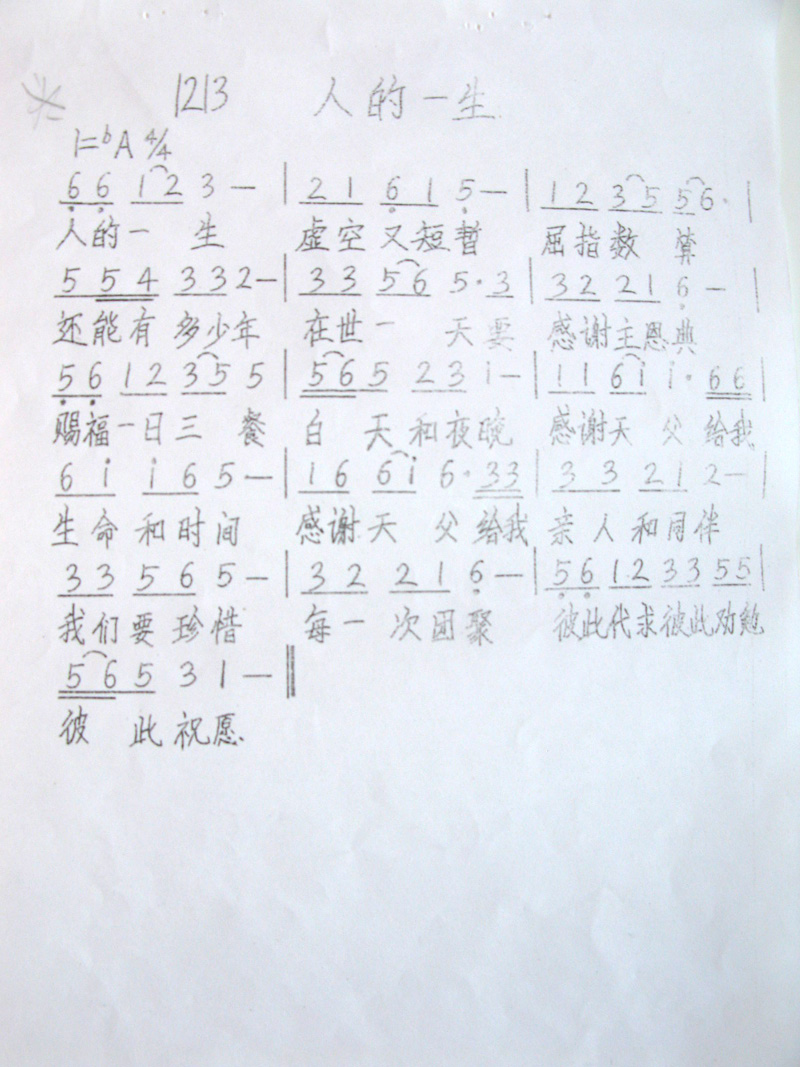 1213 人的一生
1=ᵇA 4/4
6̣ 6̣ 1 2 3 — | 2 1 6̣ 1 5̣ — | 1 2 3 5 5 6· |
人的一 生 虚空又短暂 屈指数 算
5 5 4 3 3 2 — | 3 3 5 6 5· 3 | 3 2 2 1 6̣ — |
还能有多少年 在世一 天要 感谢主恩典
5̣ 6̣ 1 2 3 5 5 | 5 6 5 2 3 1 — | 1 1 6 i i· 6 6 |
赐福一日三 餐 白 天和夜晚 感谢天 父给我
6 i i 6 5 — | 1 6 6 i 6· 3 3 | 3 3 2 1 2 — |
生命和时间 感谢天 父给我 亲人和同伴
3 3 5 6 5 — | 3 2 2 1 6̣ — | 5̣ 6̣ 1 2 3 3 5 5 |
我们要珍惜 每一次团聚 彼此代求彼此劝勉
5 6 5 3 1 — ‖
彼 此祝愿.